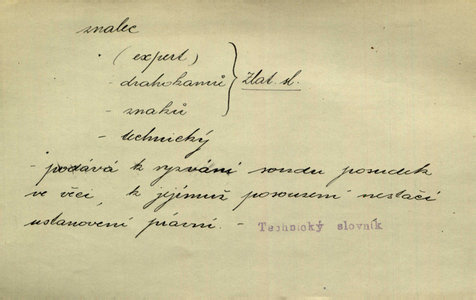 znalec
(expert)
- drahokamů
- znaků
Zlat. sl.
- technický
- podává k vyzvání soudu posudek
ve věci, k jejímuž posouzení nestačí
ustanovení právní. -
Technický slovník